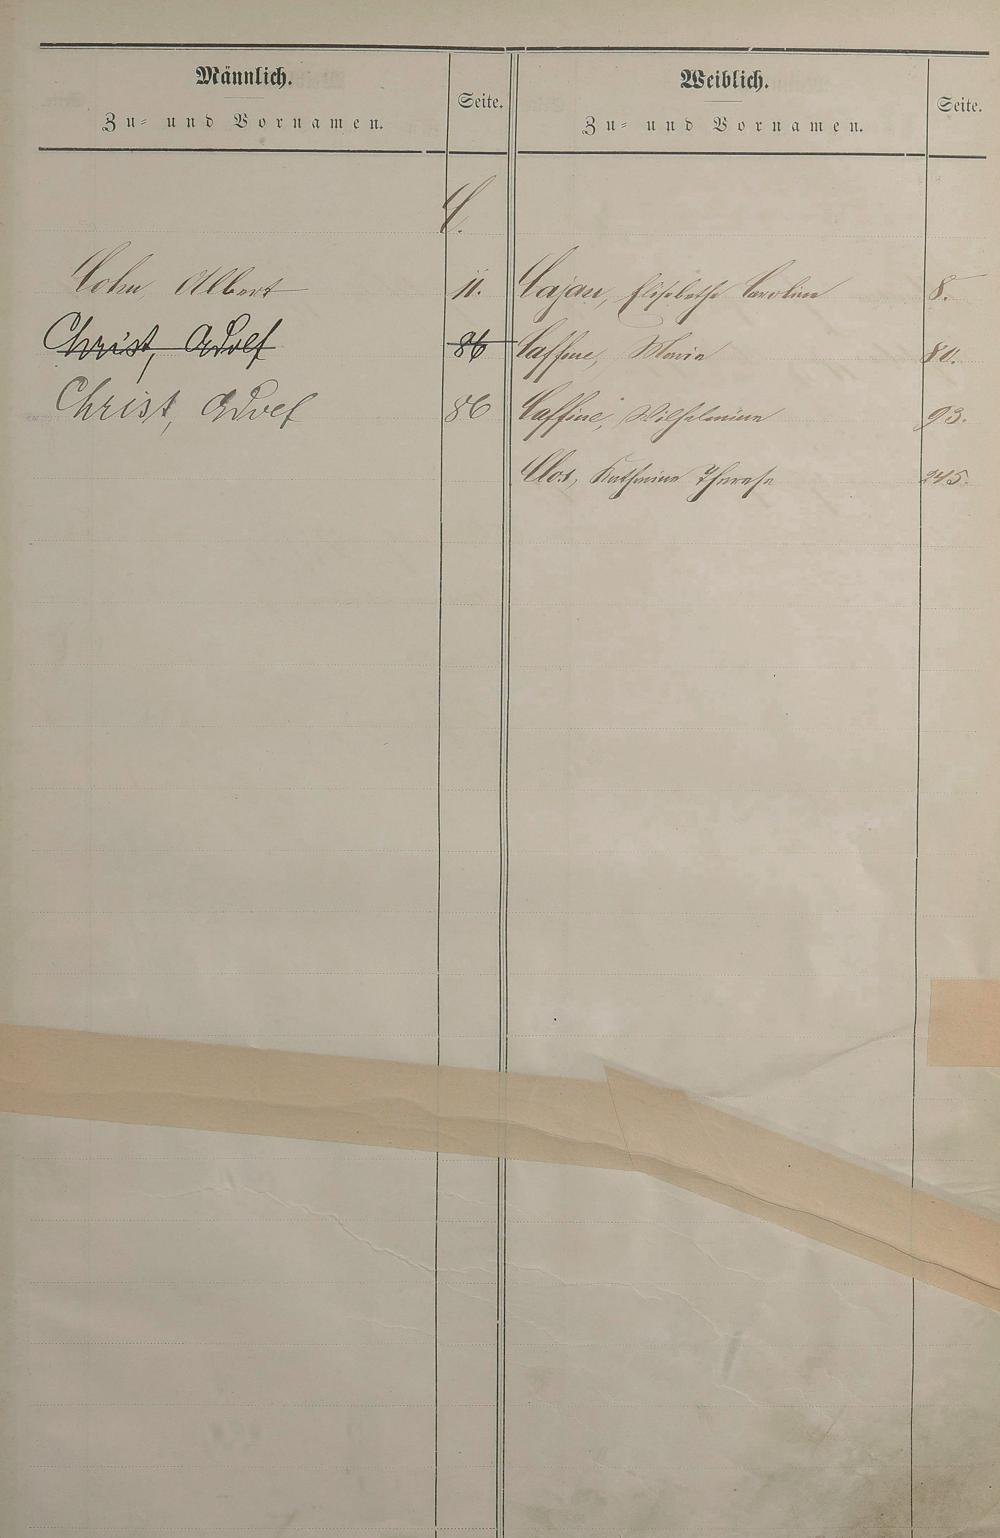 Männlich.
Zu- und Vornamen.
Seite.
Weiblich.
Zu- und Vornamen.
Seite.
C.
Cohn, Albert 11.
Christ, Adolf 86
Christ, Adolf 86
Cajar, Elisabetha Carolina 8.
Caffine, Maria 80.
Caffine, Wilhelmine 93.
Clos, Katharina Therese 245.